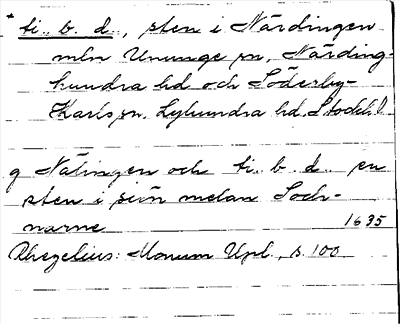 * ti.. b.. d.., sten i Närdingen
mln Ununge sn, Närding-
hundra hd och Söderby-
Karls sn, Lyhundra hd, Stockh. l
g Nälingen och ti.. b.. d.. en
sten i siön melan Soch-
narne 1635
Rhezelius: Monum Upl., s. 100